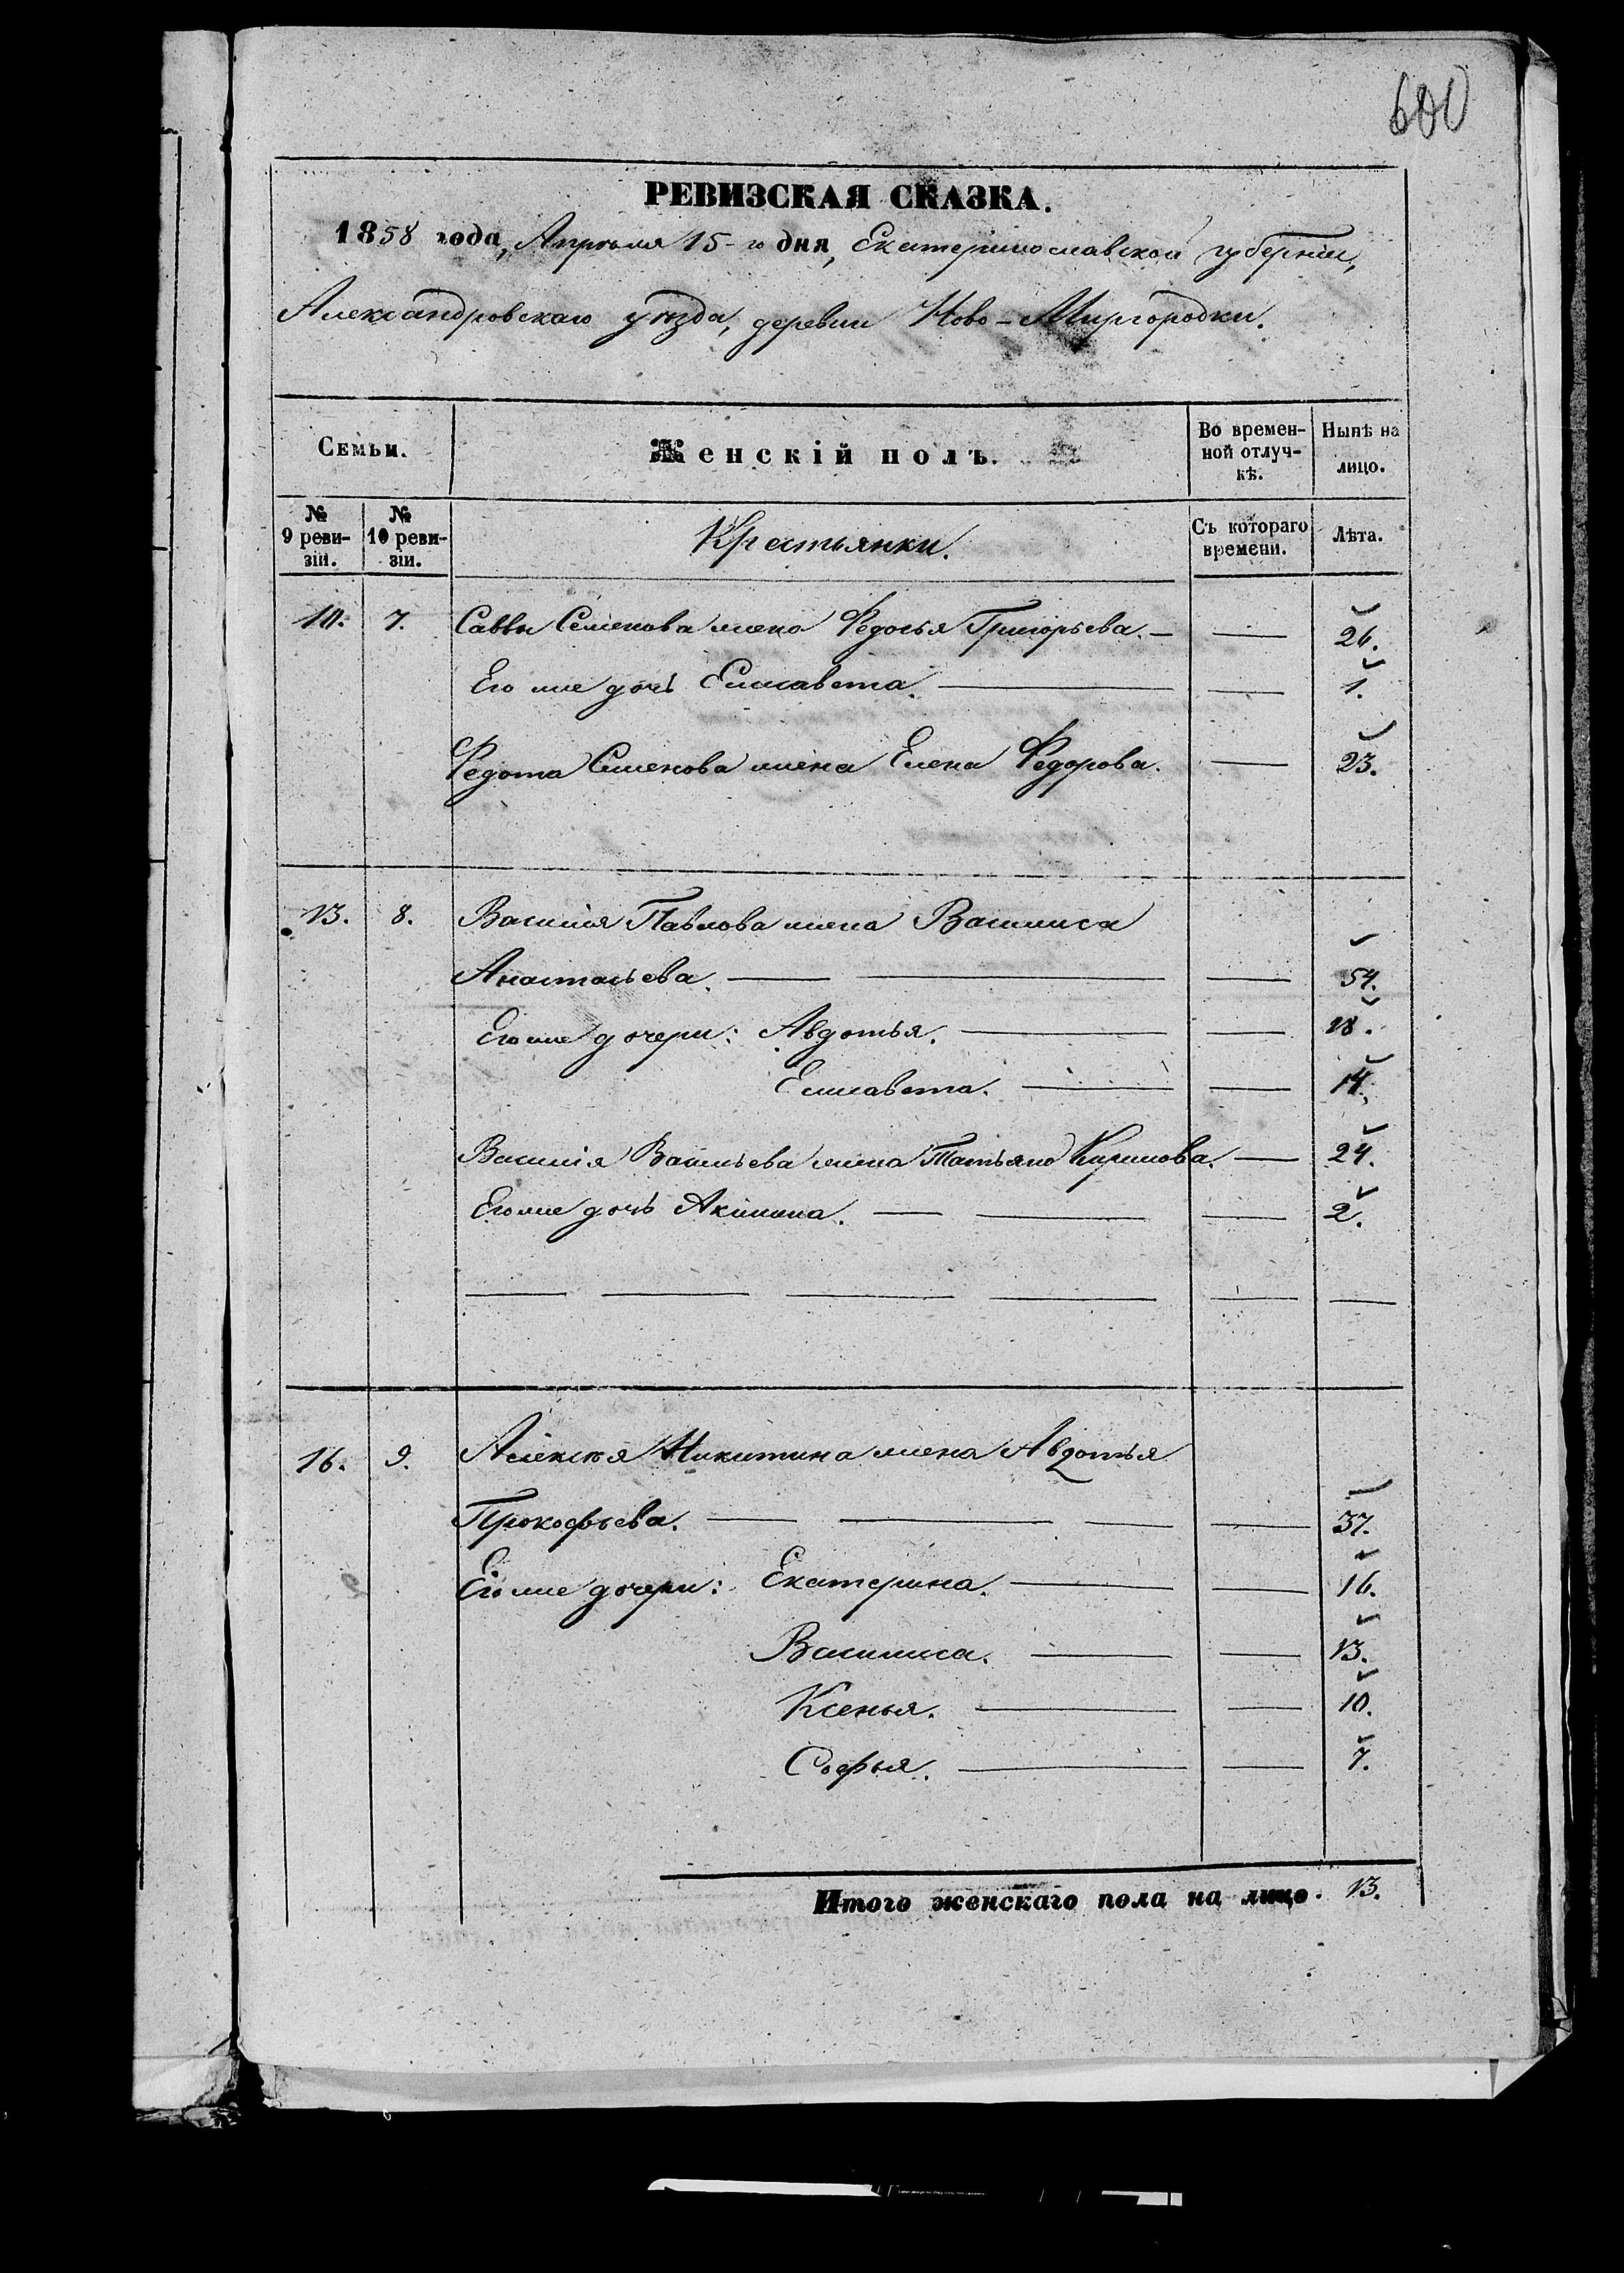 600
РЕВИЗСКАЯ СКАЗКА.
1858 года, Апрѣля 15-го дня, Екатеринославской губерніи,
Александровскаго уѣзда, деревни Ново-Миргородки.
Семьи.
Женскій полъ.
Во времен-
ной отлуч-
кѣ.
Нынѣ на
лицо.
№
9 реви-
зіи.
№
10 реви-
зіи.
Крестьянки.
Съ котораго
времени.
Лѣта.
10. 7. Саввы Семенова жена Федосья Григорьева. — — 26.
Его же дочь Елисавета. — — 1.
Федота Семенова жена Елена Федорова. — 23.
13. 8. Василія Павлова жена Василиса
Анастасьева. — — — 54.
Его же дочери: Авдотья. — — 18.
Елисавета. — — 14.
Василія Васильева жена Татьяна Кирилова. — 24.
Его же дочь Акилина. — — — 2.
16. 9. Алексѣя Никитина жена Авдотья
Прокофьева. — — — — 37.
Его же дочери: Екатерина. — — 16.
Василиса. — — 13.
Ксенья. — — 10.
Софья. — — 7.
Итого женскаго пола на лицо. 13.